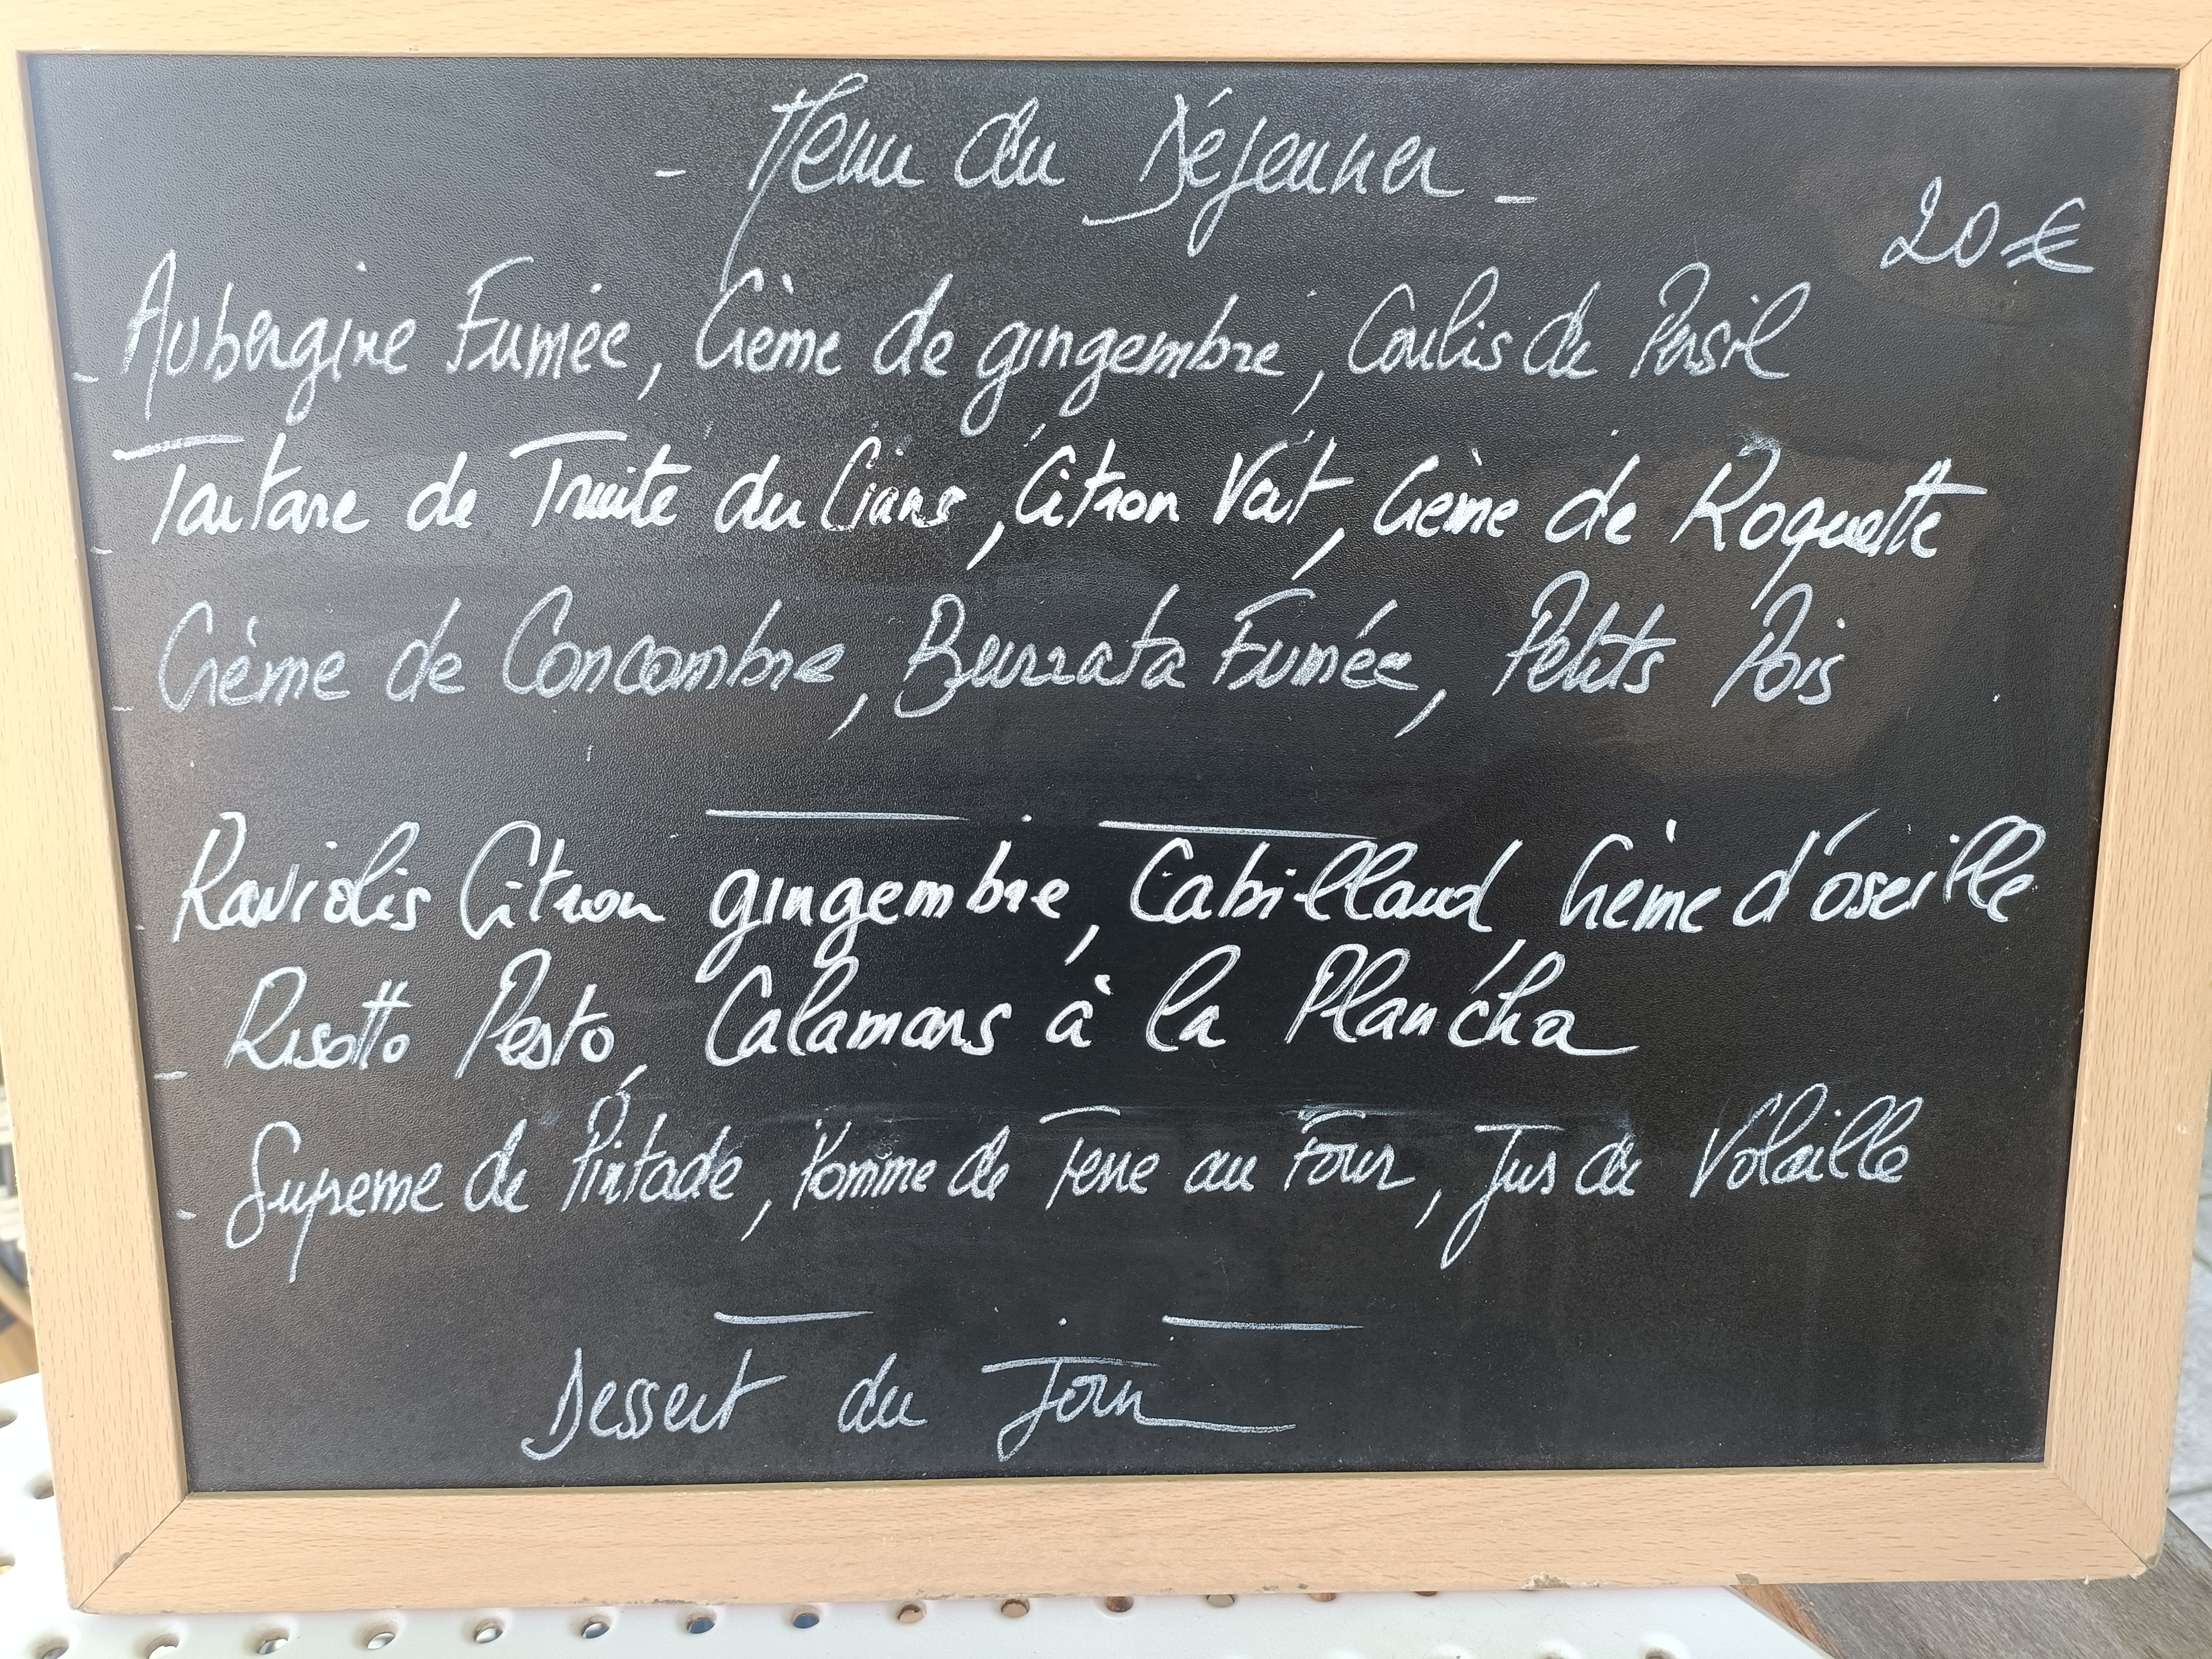 - Menu du Déjeuner -
20 €
- Aubergine Fumée, Crème de gingembre, Coulis de Persil
- Tartare de Truite du Cians, Citron Vert, Crème de Roquette
- Crème de Concombre, Burrata Fumée, Petits Pois
- Raviolis Citron gingembre, Cabillaud Crème d'oseille
- Risotto Pesto, Calamars à la Plancha
- Supreme de Pintade, Pomme de Terre au Four, Jus de Volaille
Dessert du Jour